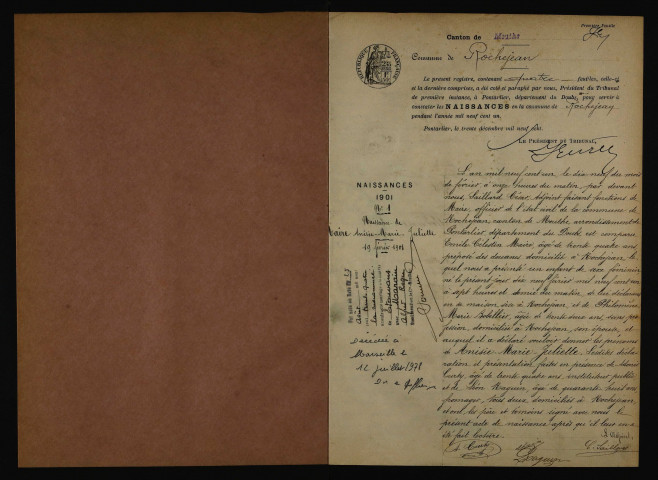 Première Feuille
Canton de Mouthe
Commune de Rochejean
RÉPUBLIQUE FRANÇAISE
Le présent registre, contenant quatre feuilles, celle-ci
et la dernière comprises, a été coté et paraphé par nous, Président du Tribunal
de première instance, à Pontarlier, département du Doubs, pour servir à
constater les NAISSANCES en la commune de Rochejean
pendant l'année mil neuf cent un.
Pontarlier, le trente décembre mil neuf cent.
LE PRÉSIDENT DU TRIBUNAL,
NAISSANCES
1901
N° 1
Naissance de
Maire Anisie-Marie-Juliette
19 février 1901
Décédée à
Marseille le
12 juillet 1978
L'an mil neuf cent un, le dix neuf du mois
de février à onze heures du matin, par devant
nous, Jaillard César Adjoint faisant fonctions de
Maire, officier de l'état civil de la commune de
Rochejean, canton de Mouthe, arrondissement de
Pontarlier département du Doubs, est comparu
Emile Célestin Maire, âgé de trente quatre ans,
préposé des douanes domicilié à Rochejean, le
quel nous a présenté un enfant de sexe féminin
né le présent jour dix neuf février mil neuf cent un
à sept heures et demie du matin, de lui déclarant
en sa maison sise à Rochejean, et de Philomène
Marie âgée de trente deux ans, sans pro
fession, domiciliée à Rochejean, son épouse, et
auquel il a déclaré vouloir donner les prénoms
d'Anisie-Marie-Juliette. Lesdites décla
ration et présentation faites en présence de
âgé de trente quatre ans, instituteur public
et de Léon Raguin, âgé de quarante huit ans
fromager, tous deux domiciliés à Rochejean,
et ont, les père et témoins signé avec nous le
présent acte de naissance après qu'il leur en a
été fait lecture.
L'Adjoint,